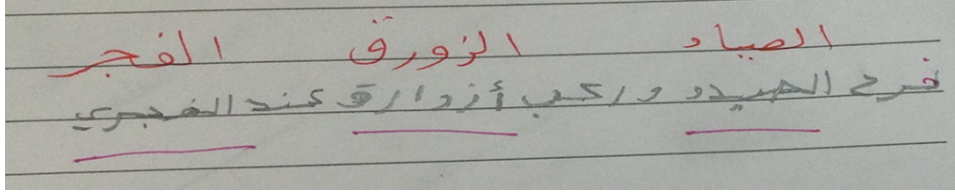 الصياد الزورق الفجر
فرح الصيدو وركب أزوارق عند الفجري